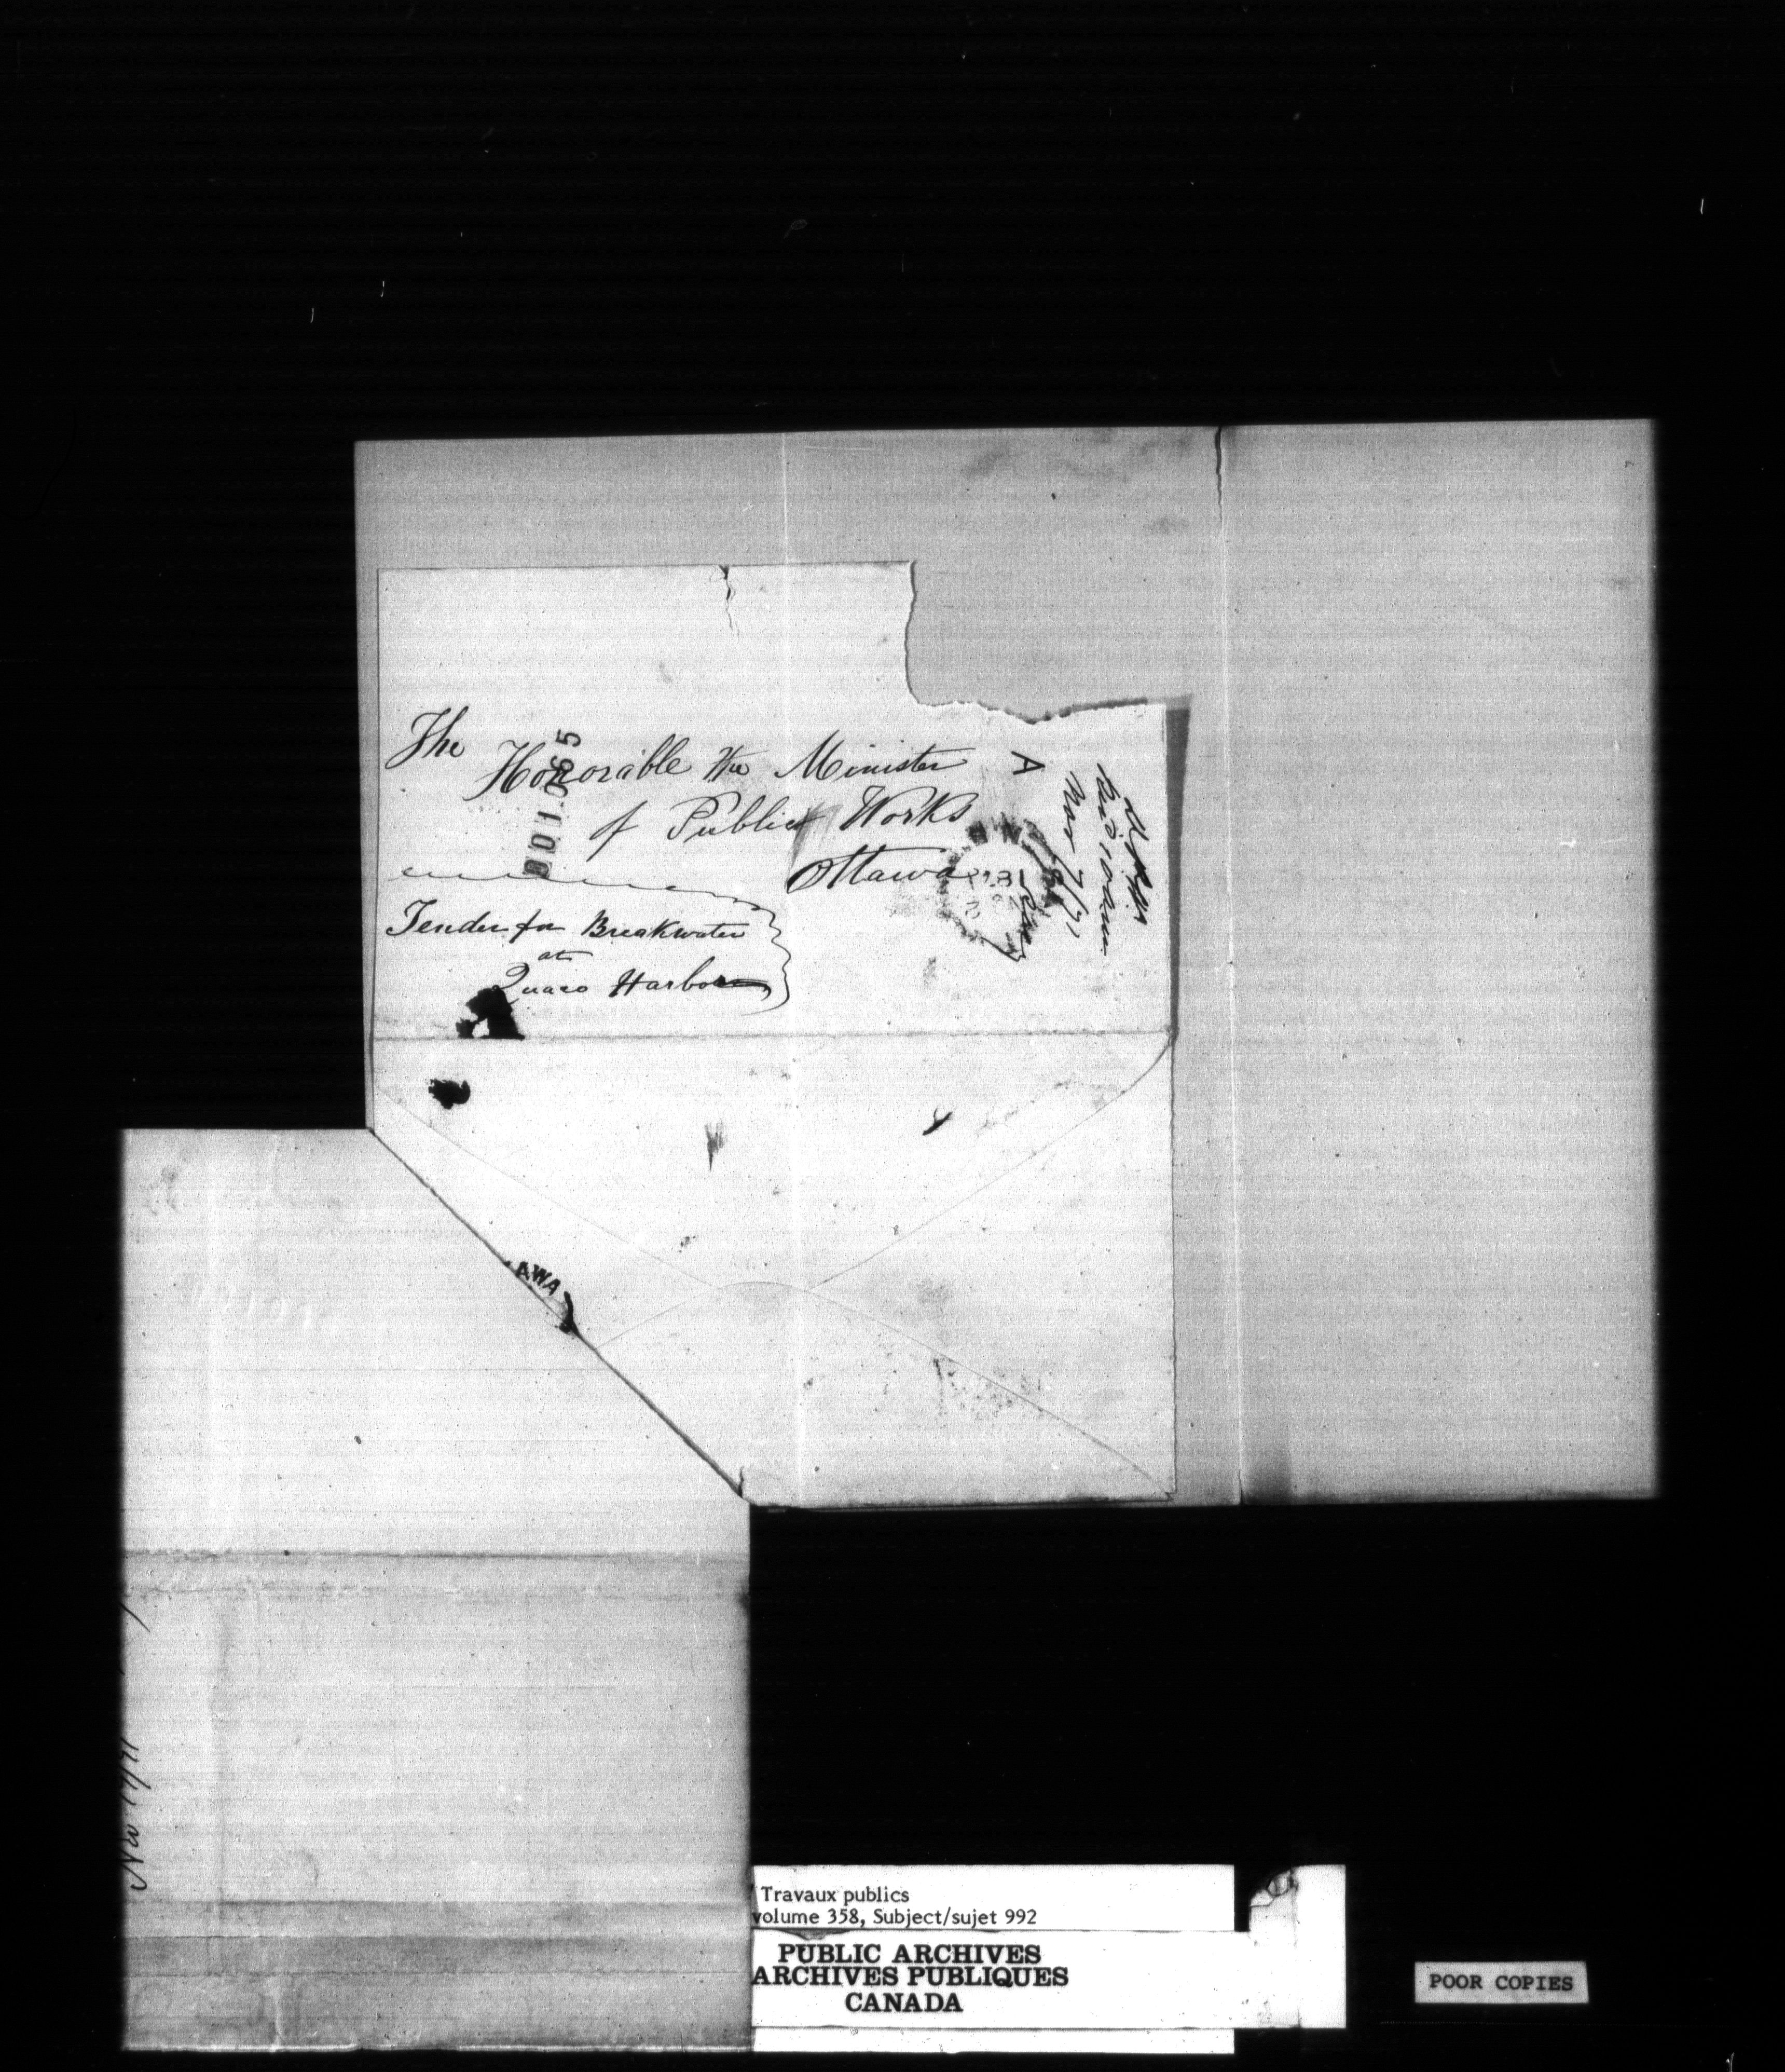 The
Honorable the Minister
of Public Works
Ottawa
Tender for Breakwater
at
Quaco Harbor
001065
A
Nov 7/71
AWA
Nov 17/71
Travaux publics
volume 358, Subject/sujet 992
PUBLIC ARCHIVES
ARCHIVES PUBLIQUES
CANADA
POOR COPIES